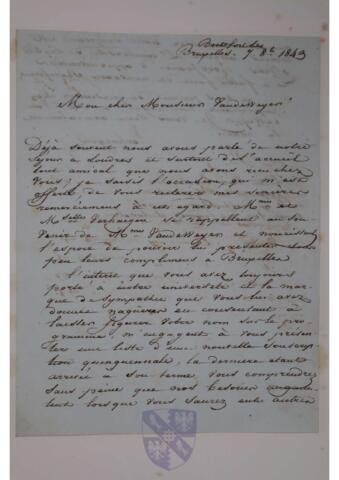 Boitsfort lez
Bruxelles. 7 8bre 1843
Mon cher Monsieur VandeWeyer!
Déjà souvent nous avons parlé de notre
séjour à Londres et surtout de l'accueil
tout amical que nous avons reçu chez
Vous; je saisis l'occasion, qui m'est
offerte, de vous réitérer mes sincères
remerciemens à cet égard. Mme et
Mselle Verhaegen se rappellent au sou-
venir de Mme VandeWeyer et nourrissent
l'espoir de pouvoir lui présenter
peu leurs complimens à Bruxelles
L'intérêt que vous avez toujours
porté à notre université et la mar-
que de sympathie que vous lui avez
donnée naguères en consentant à
laisser figurer votre nom sur le pro-
gramme, m'engagent à vous présen-
ter une liste d'une nouvelle souscrip-
tion quinquennale, la dernière étant
arrivée à son terme. Vous comprendrez
sans peine que nos besoins augmen-
tent lorsque vous saurez entr'autres